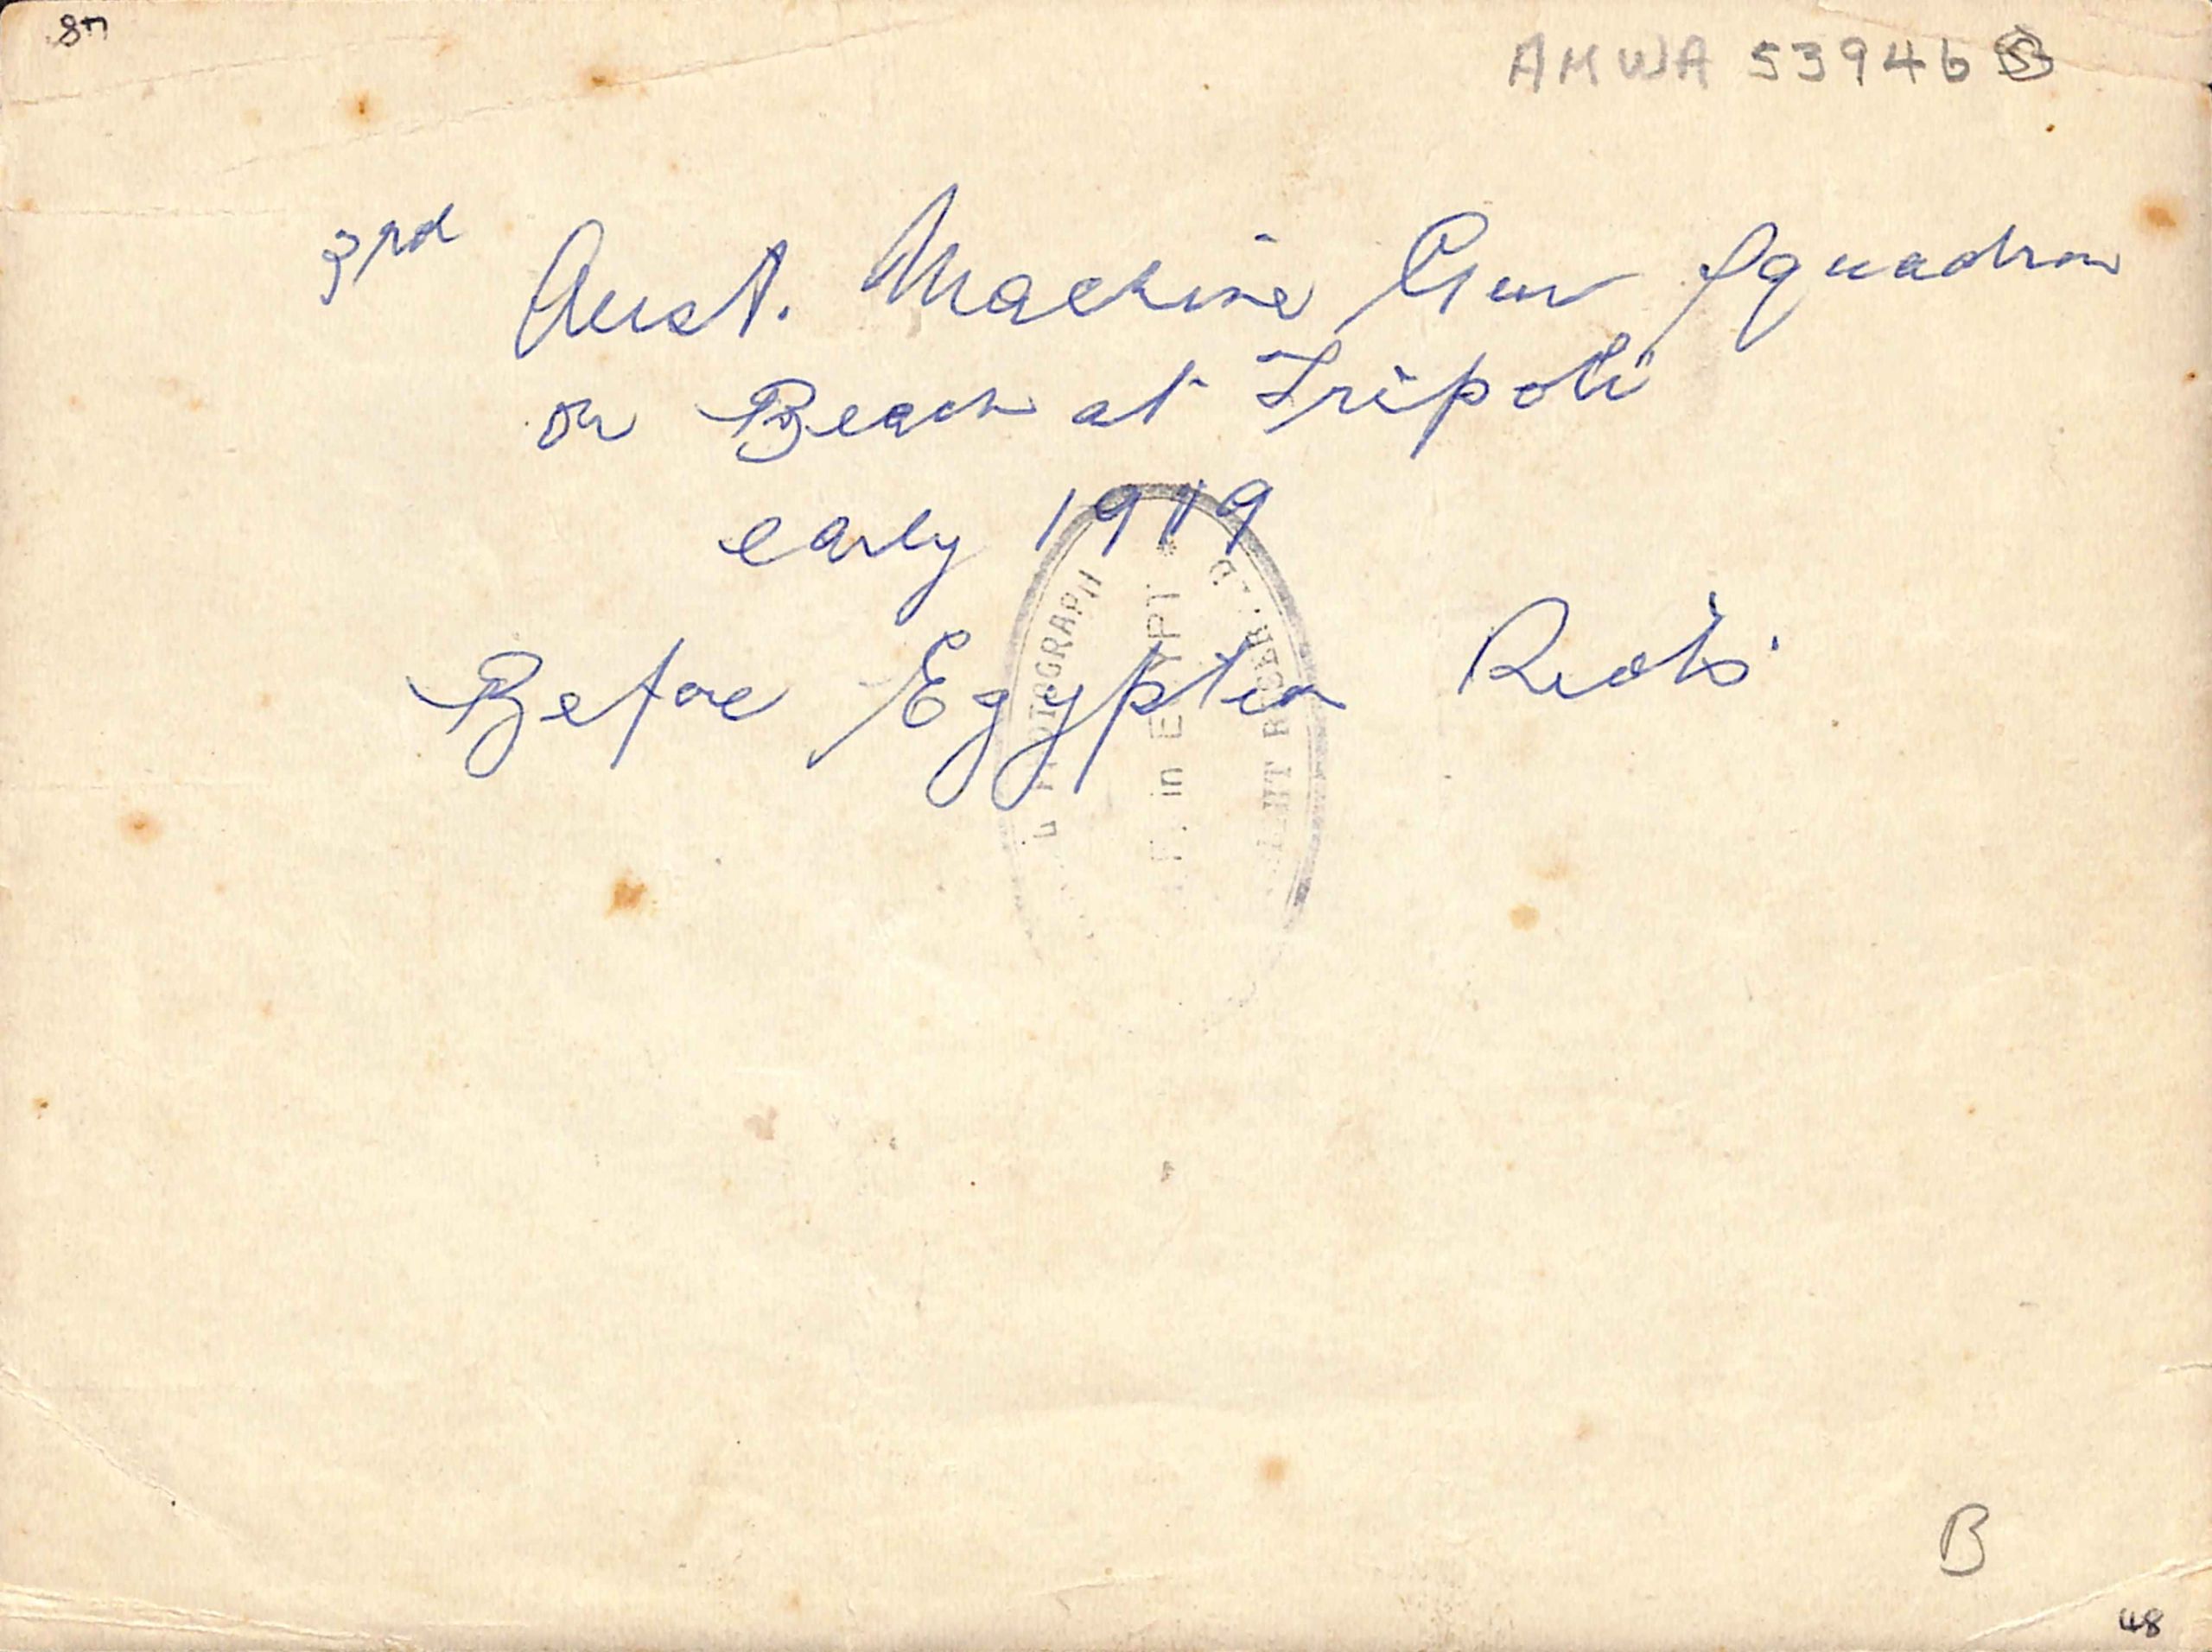 48
AMWA 53946 S
3rd Aust. Machine Gun Squadron
on Beach at Tripoli
early 1919
Before Egyptian Riots
PHOTOGRAPH
in EGYPT
B
48